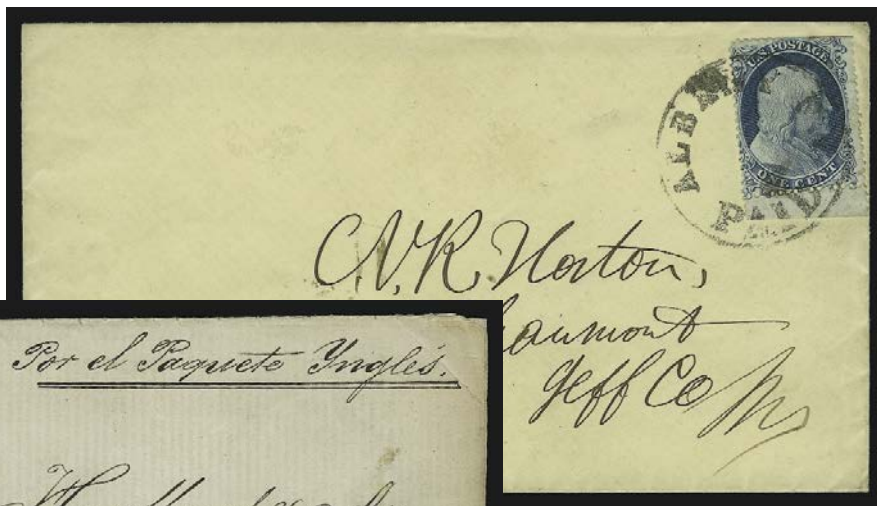 U.S. POSTAGE
ONE CENT
ALBANY
PAID
N. K. Horton,
aumont
Jeff Co
Por el Paquete Ynglés.